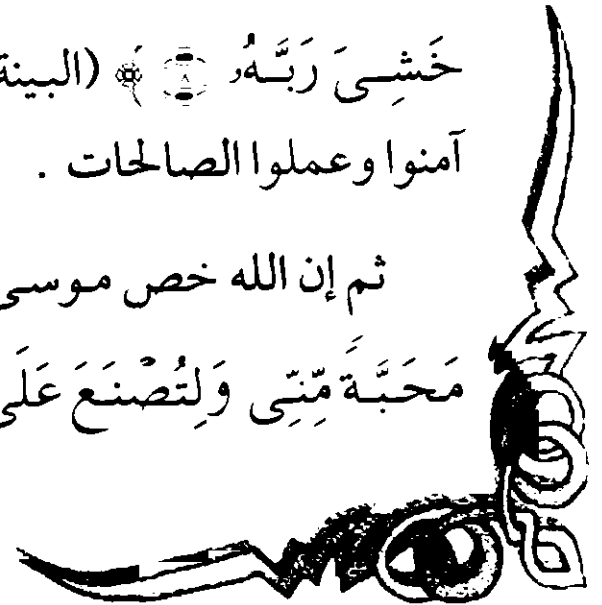 خَشِـىَ رَبَّـهُۥ ٨ ﴾ (البينة
آمنوا وعملوا الصالحات .
ثم إن الله خص موسى
مَحَـبَّـةً مِّنِّى وَلِتُصْنَعَ عَلَى